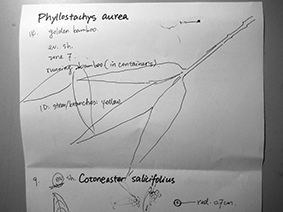 Phyllostachys aurea
18. golden bamboo
ev. sh.
zone 7
running bamboo (in containers)
ID: stem/branches: yellow
9. sh. Cotoneaster salicifolius
red. 0.7cm.